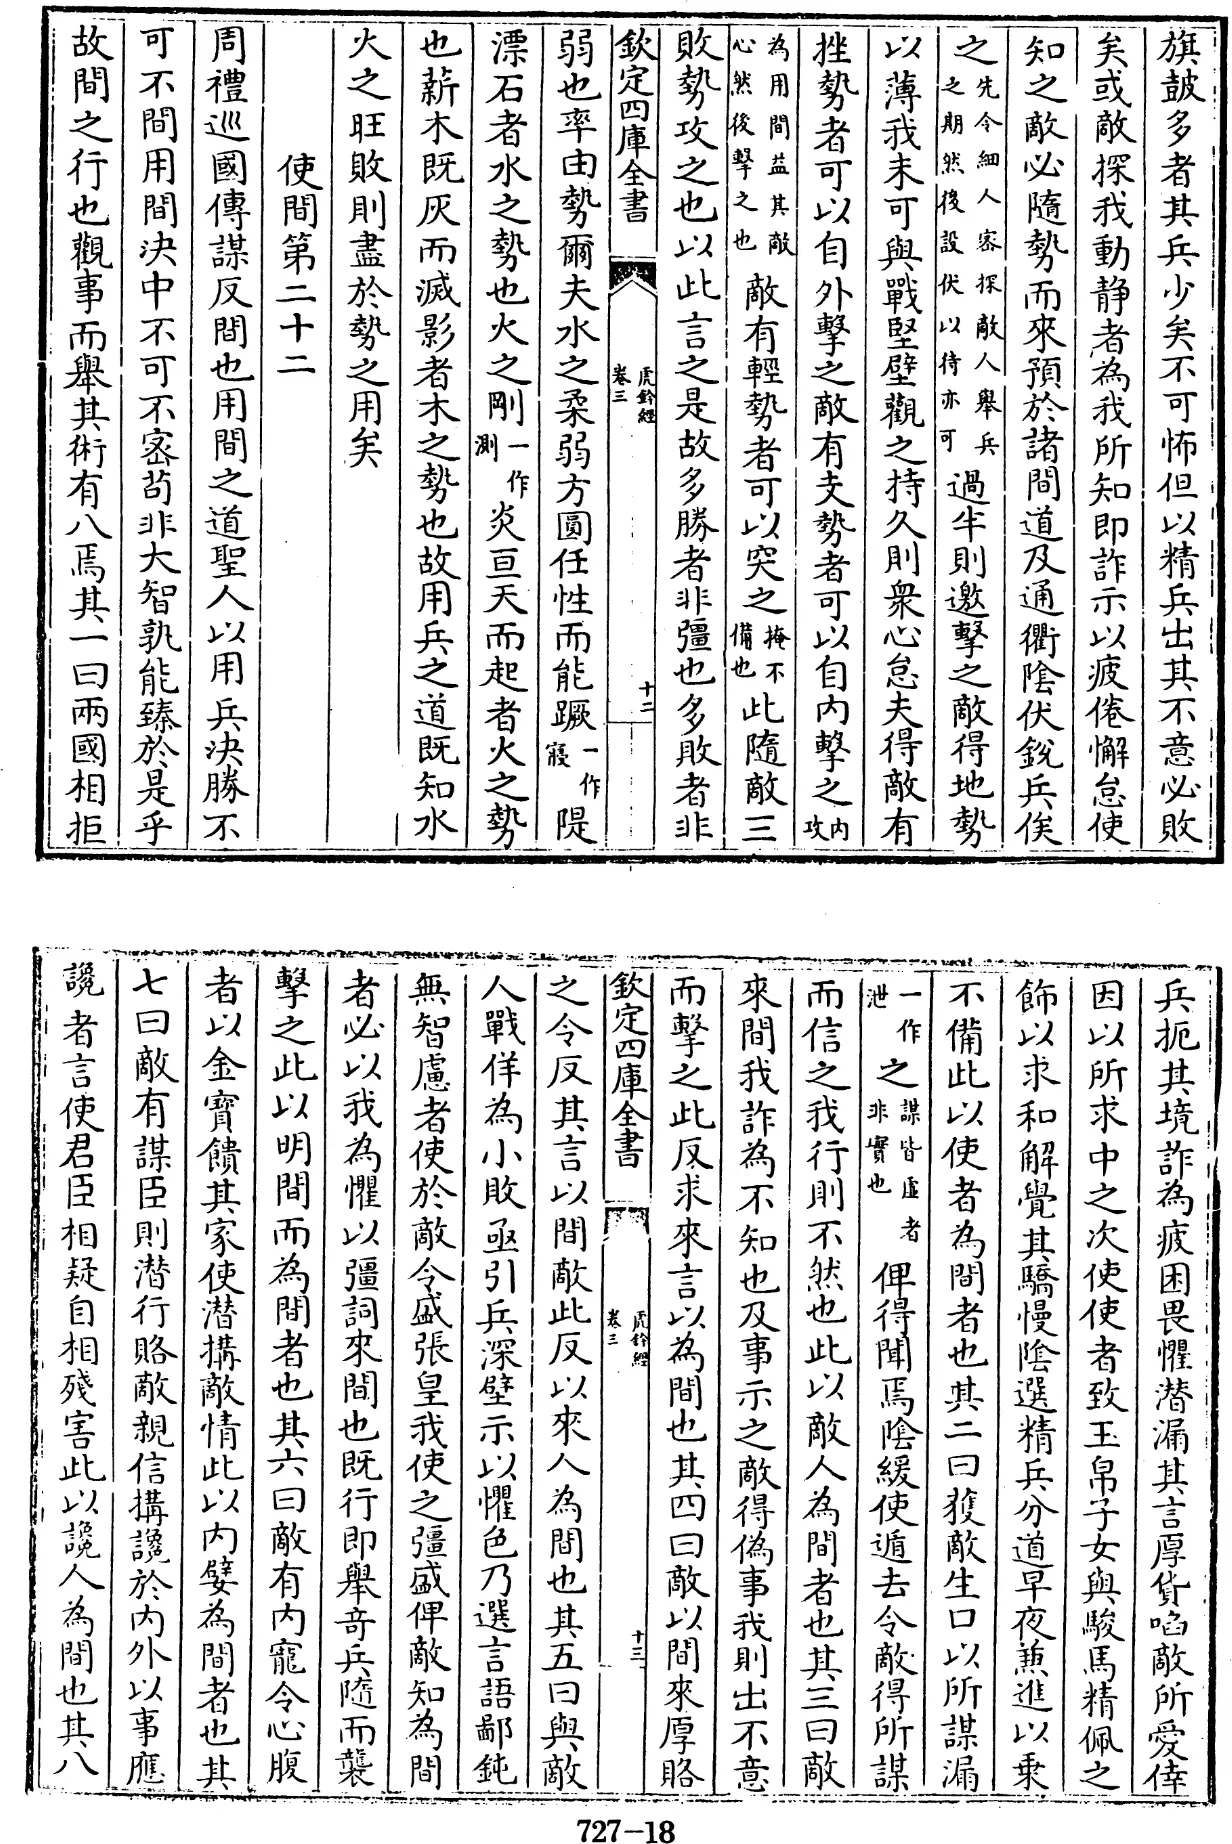 旗鼓多者其兵少矣不可怖但以精兵出其不意必敗
矣或敵探我動靜者為我所知即詐示以疲倦懈怠使
知之敵必隨勢而來預於諸間道及通衢陰伏銳兵俟
之先令細人密探敵人舉兵之期然後設伏以待亦可過半則邀擊之敵得地勢
以薄我未可與戰堅壁觀之持久則衆心怠夫得敵有
挫勢者可以自外擊之敵有支勢者可以自内擊之内攻
為用間益其敵心然後擊之也敵有輕勢者可以突之掩不備也此隨敵三
敗勢攻之也以此言之是故多勝者非彊也多敗者非
欽定四庫全書
虎鈐經
卷三
十二
弱也率由勢爾夫水之柔弱方圓任性而能蹶一作㝮隄
漂石者水之勢也火之剛一作測炎亘天而起者火之勢
也薪木既灰而滅影者木之勢也故用兵之道既知水
火之旺敗則盡於勢之用矣
使間第二十二
周禮巡國傳謀反間也用間之道聖人以用兵決勝不
可不間用間決中不可不密苟非大智孰能臻於是乎
故間之行也觀事而舉其術有八焉其一曰兩國相拒
兵扼其境詐為疲困畏懼潛漏其言厚貨啗敵所愛倖
因以所求中之次使使者致玉帛子女輿駿馬精佩之
飾以求和解覺其驕慢陰選精兵分道早夜兼進以乘
不備此以使者為間者也其二曰獲敵生口以所謀漏
一作泄之謀皆虛者非實也俾得聞焉陰緩使遁去令敵得所謀
而信之我行則不然也此以敵人為間者也其三曰敵
來間我詐為不知也及事示之敵得偽事我則出不意
而擊之此反求來言以為間也其四曰敵以間來厚賂
欽定四庫全書
虎鈐經
卷三
十三
之令反其言以間敵此反以來人為間也其五曰與敵
人戰佯為小敗亟引兵深壁示以懼色乃選言語鄙鈍
無智慮者使於敵令盛張皇我使之彊盛俾敵知為間
者必以我為懼以彊詞來間也既行即舉奇兵隨而襲
擊之此以明間而為間者也其六曰敵有内寵令心腹
者以金寳饋其家使潛搆敵情此以内嬖為間者也其
七曰敵有謀臣則潛行賂敵親信搆讒於内外以事應
讒者言使君臣相疑自相殘害此以讒人為間也其八
727-18